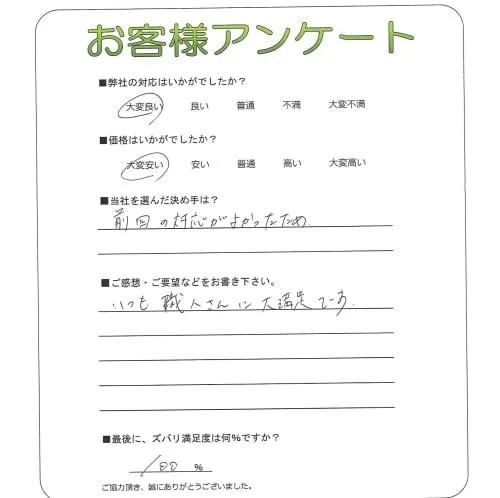 お客様アンケート
■弊社の対応はいかがでしたか？
大変良い 良い 普通 不満 大変不満
■価格はいかがでしたか？
大変安い 安い 普通 高い 大変高い
■当社を選んだ決め手は？
前回の対応がよかったため
■ご感想・ご要望などをお書き下さい。
いつも職人さんに大満足でーす。
■最後に、ズバリ満足度は何%ですか？
100 %
ご協力頂き、誠にありがとうございました。